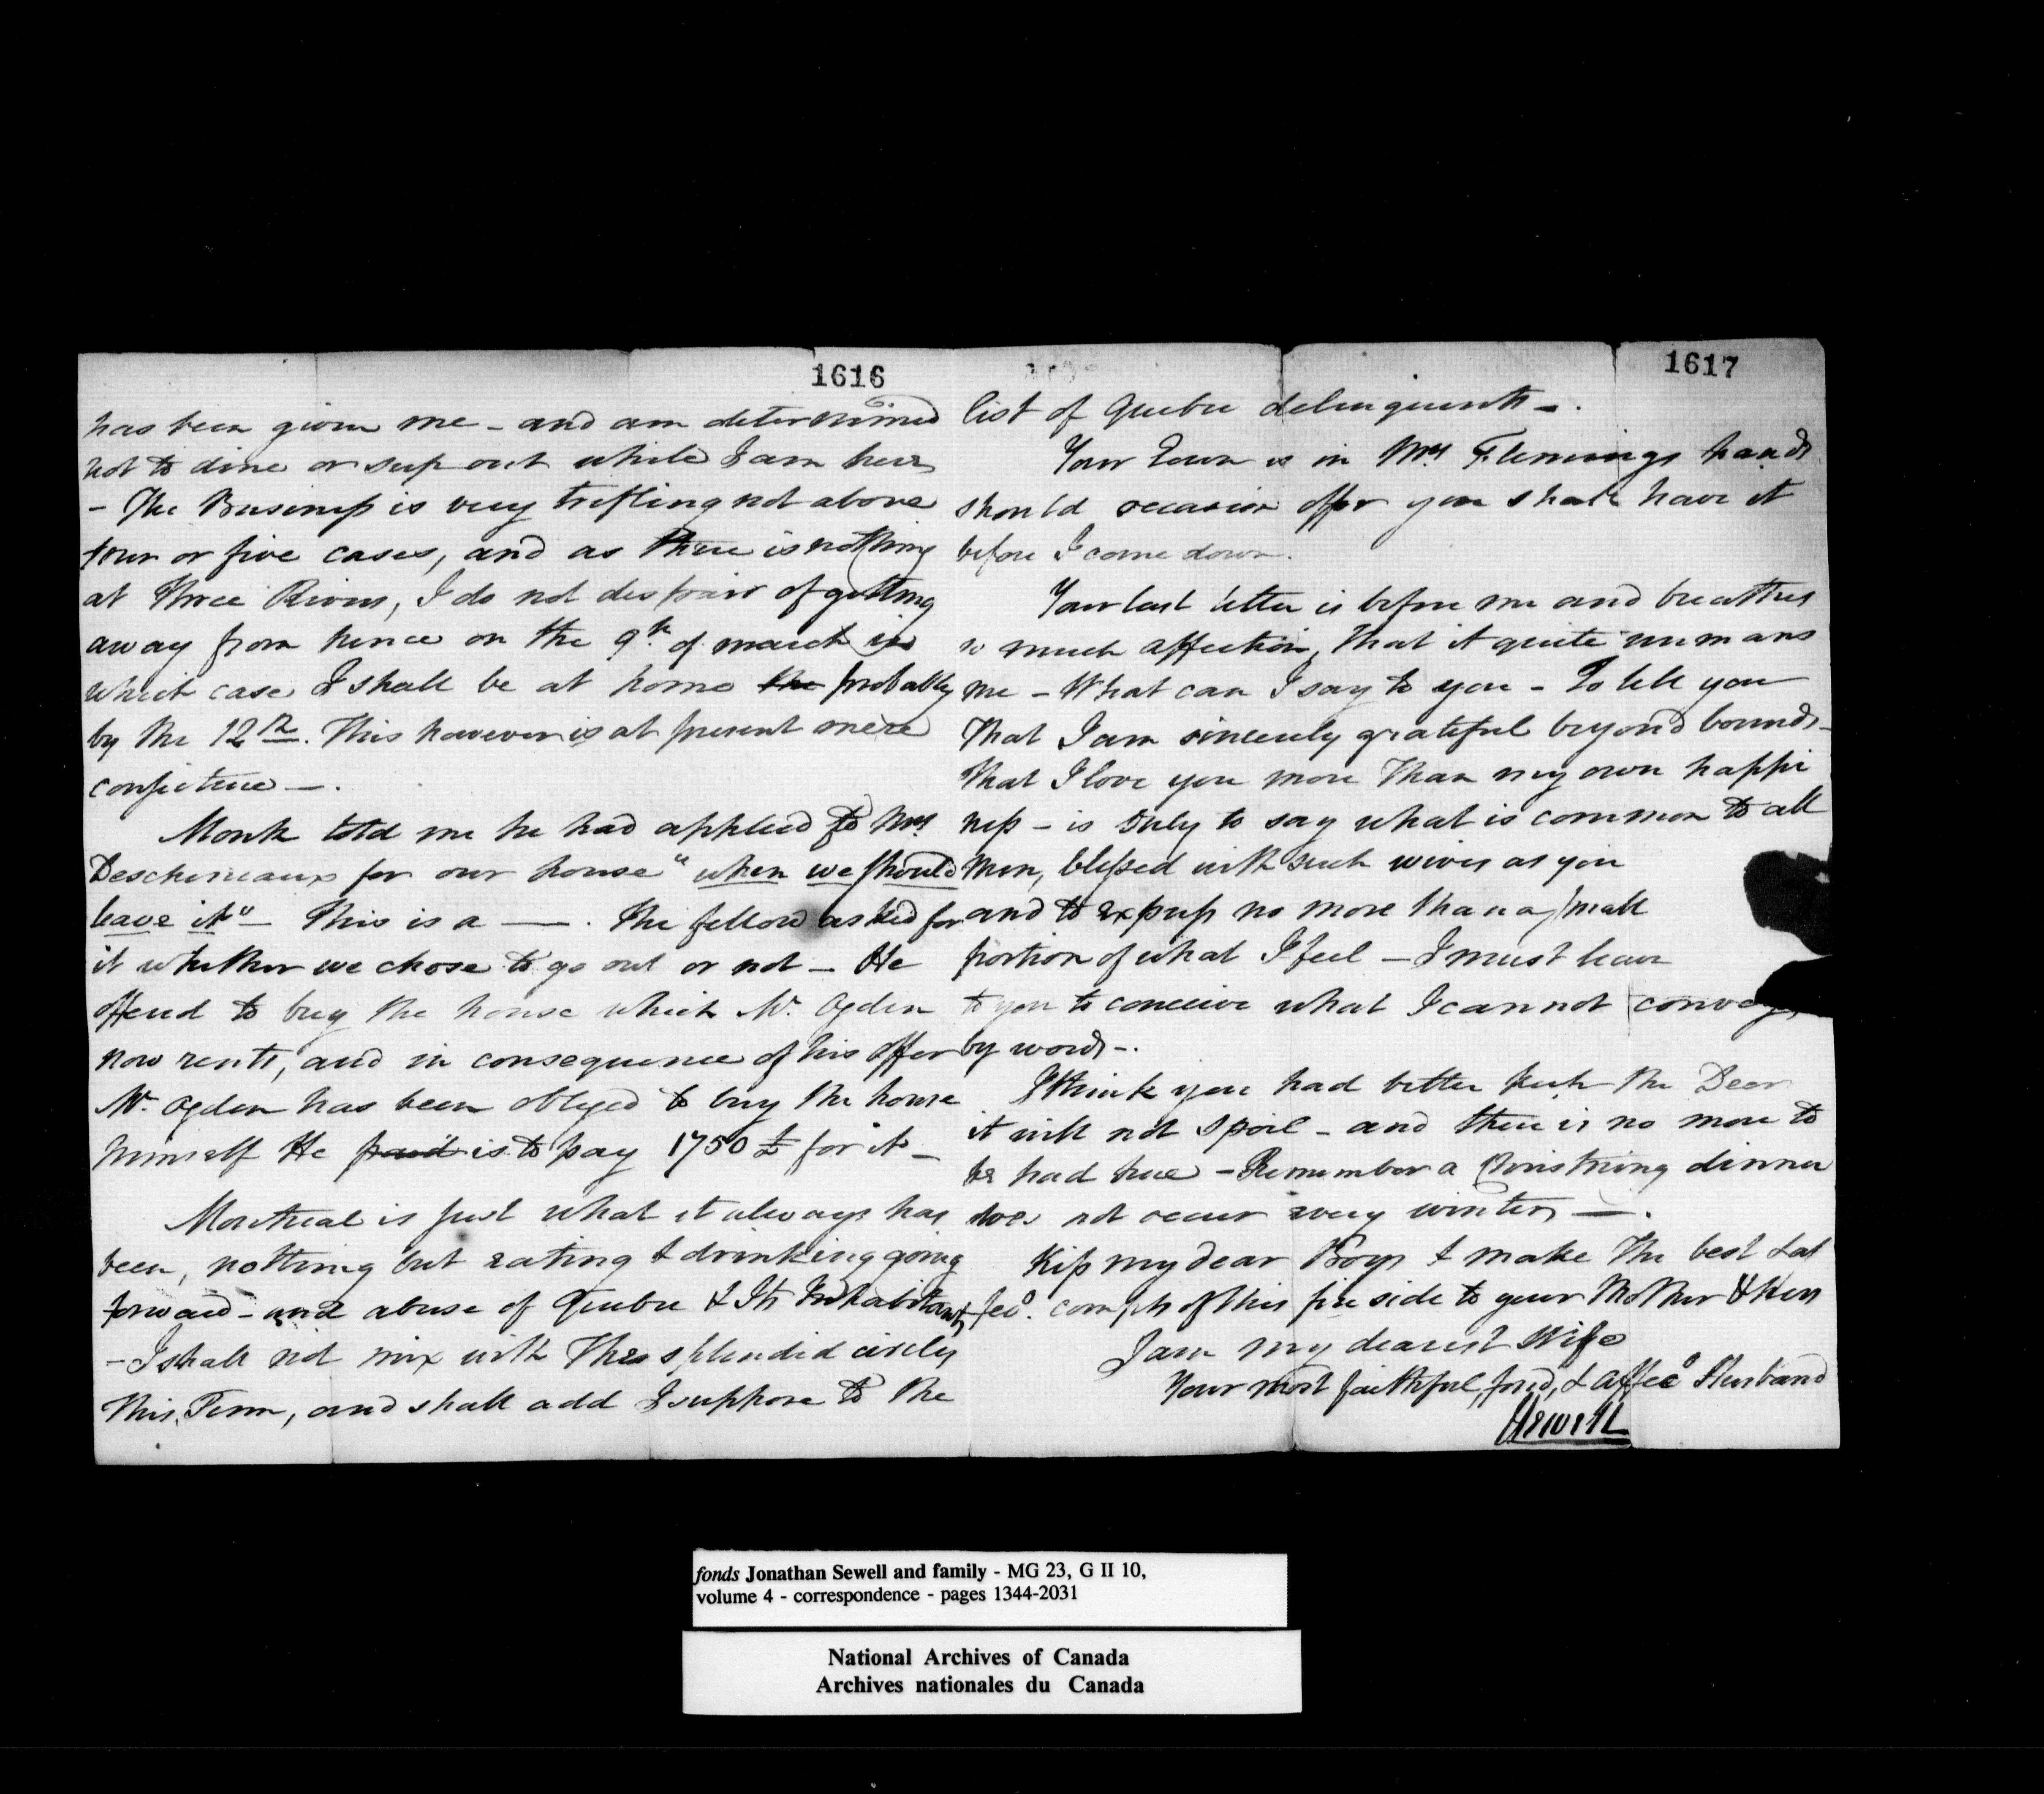 1616
has been given me - and am determined
not to dine or sup out while I am here
- The Business is very trifling not above
four or five cases, and as there is nothing
at Three Rivers, I do not despair of getting
away from hence on the 9th of march in
which case I shall be at home the probably
by the 12th. This however is at present mere
conjecture -.
Monk told me he had applied to Mrs
Descheneaux for our house "when we should
leave it" - This is a —. The fellow asked for
it whether we chose to go out or not - He
offered to buy the house which Mr. Ogden
now rents, and in consequence of his offer
Mr. Ogden has been obliged to buy the house
himself He paid is to pay 1750 £ for it -
Montreal is just what it always has
been, nothing but eating & drinking going
forward - and abuse of Quebec & Its Inhabitants
- I shall not mix with the splendid circles
this Term, and shall add I suppose to the
1617
list of Quebec delinquents -.
Your is in Mrs Flemings hands
should occasion offer you shall have it
before I come down.
Your last letter is before me and breathes
so much affection, that it quite unmans
me - What can I say to you - To tell you
that I am sincerely grateful beyond bounds -
that I love you more than my own happi
ness - is only to say what is common to all
Men, blessed with such wives as you
and to express no more than a small
portion of what I feel - I must leave
to you to conceive what I cannot convey
by words -.
I think you had better keep the Deer
it will not spoil - and there is no more to
be had here - Remember a Christning dinner
does not occur every winter -.
Kiss my dear Boys & make the best & af
feco. compts of this fire side to your Mother &
I am my dearest Wife
Your most faithful, fond, & affeco Husband
JSewell
fonds Jonathan Sewell and family - MG 23, G II 10,
volume 4 - correspondence - pages 1344-2031
National Archives of Canada
Archives nationales du Canada